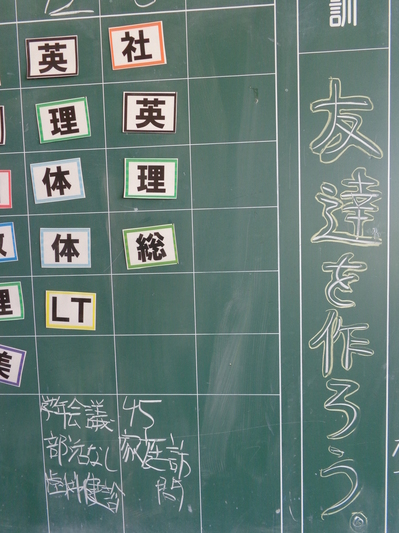 訓
友達を作ろう。
社
英
理
総
英
理
体
体
LT
数
理
美
学年会議
部活なし
歯科健診
45
家庭訪
問